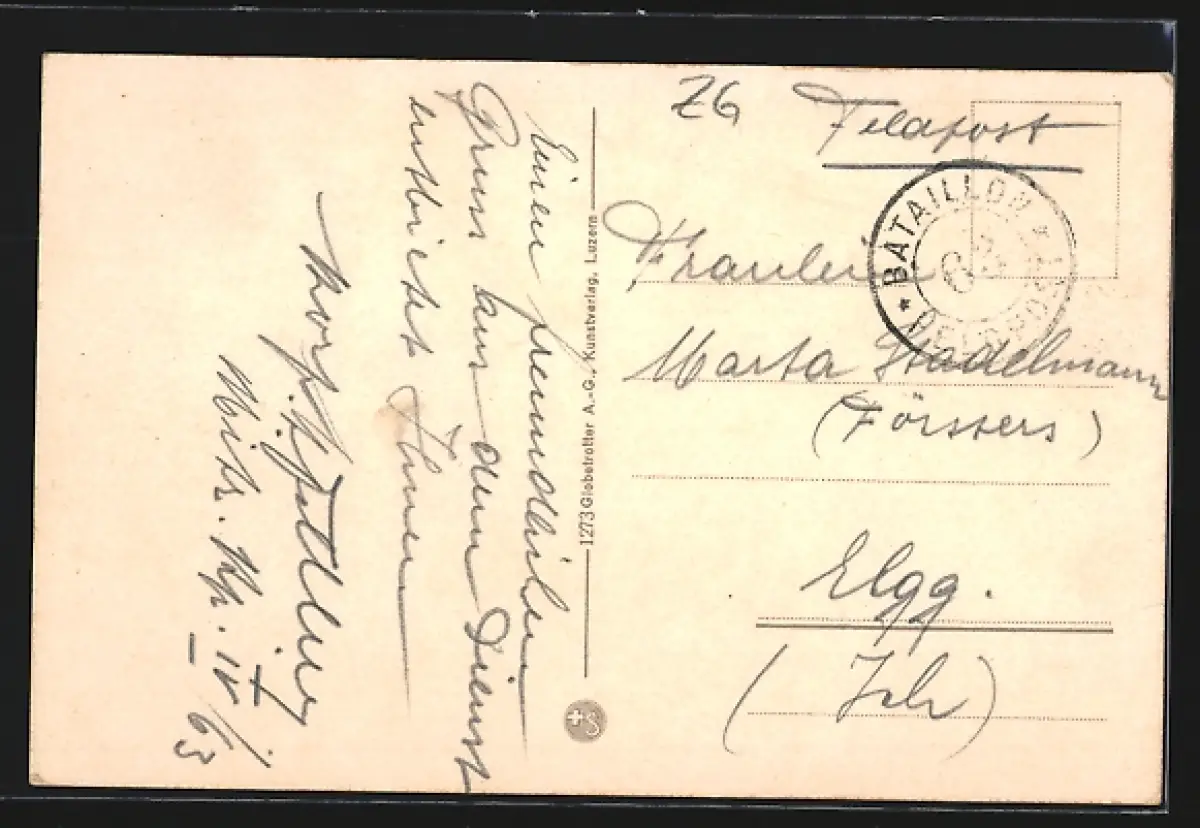 Einen freundlichen
Gruss aus dem Dienst
entbietet Ihnen
Korp.
Mitr. Kp. IV/63
1273 Globetrotter A.-G., Kunstverlag, Luzern
+S
ZG
Feldpost
* BATAILLON 63 * FELDPOST
Fräulein
Marta Stadelmann
(Försters)
Elgg.
(Zch)